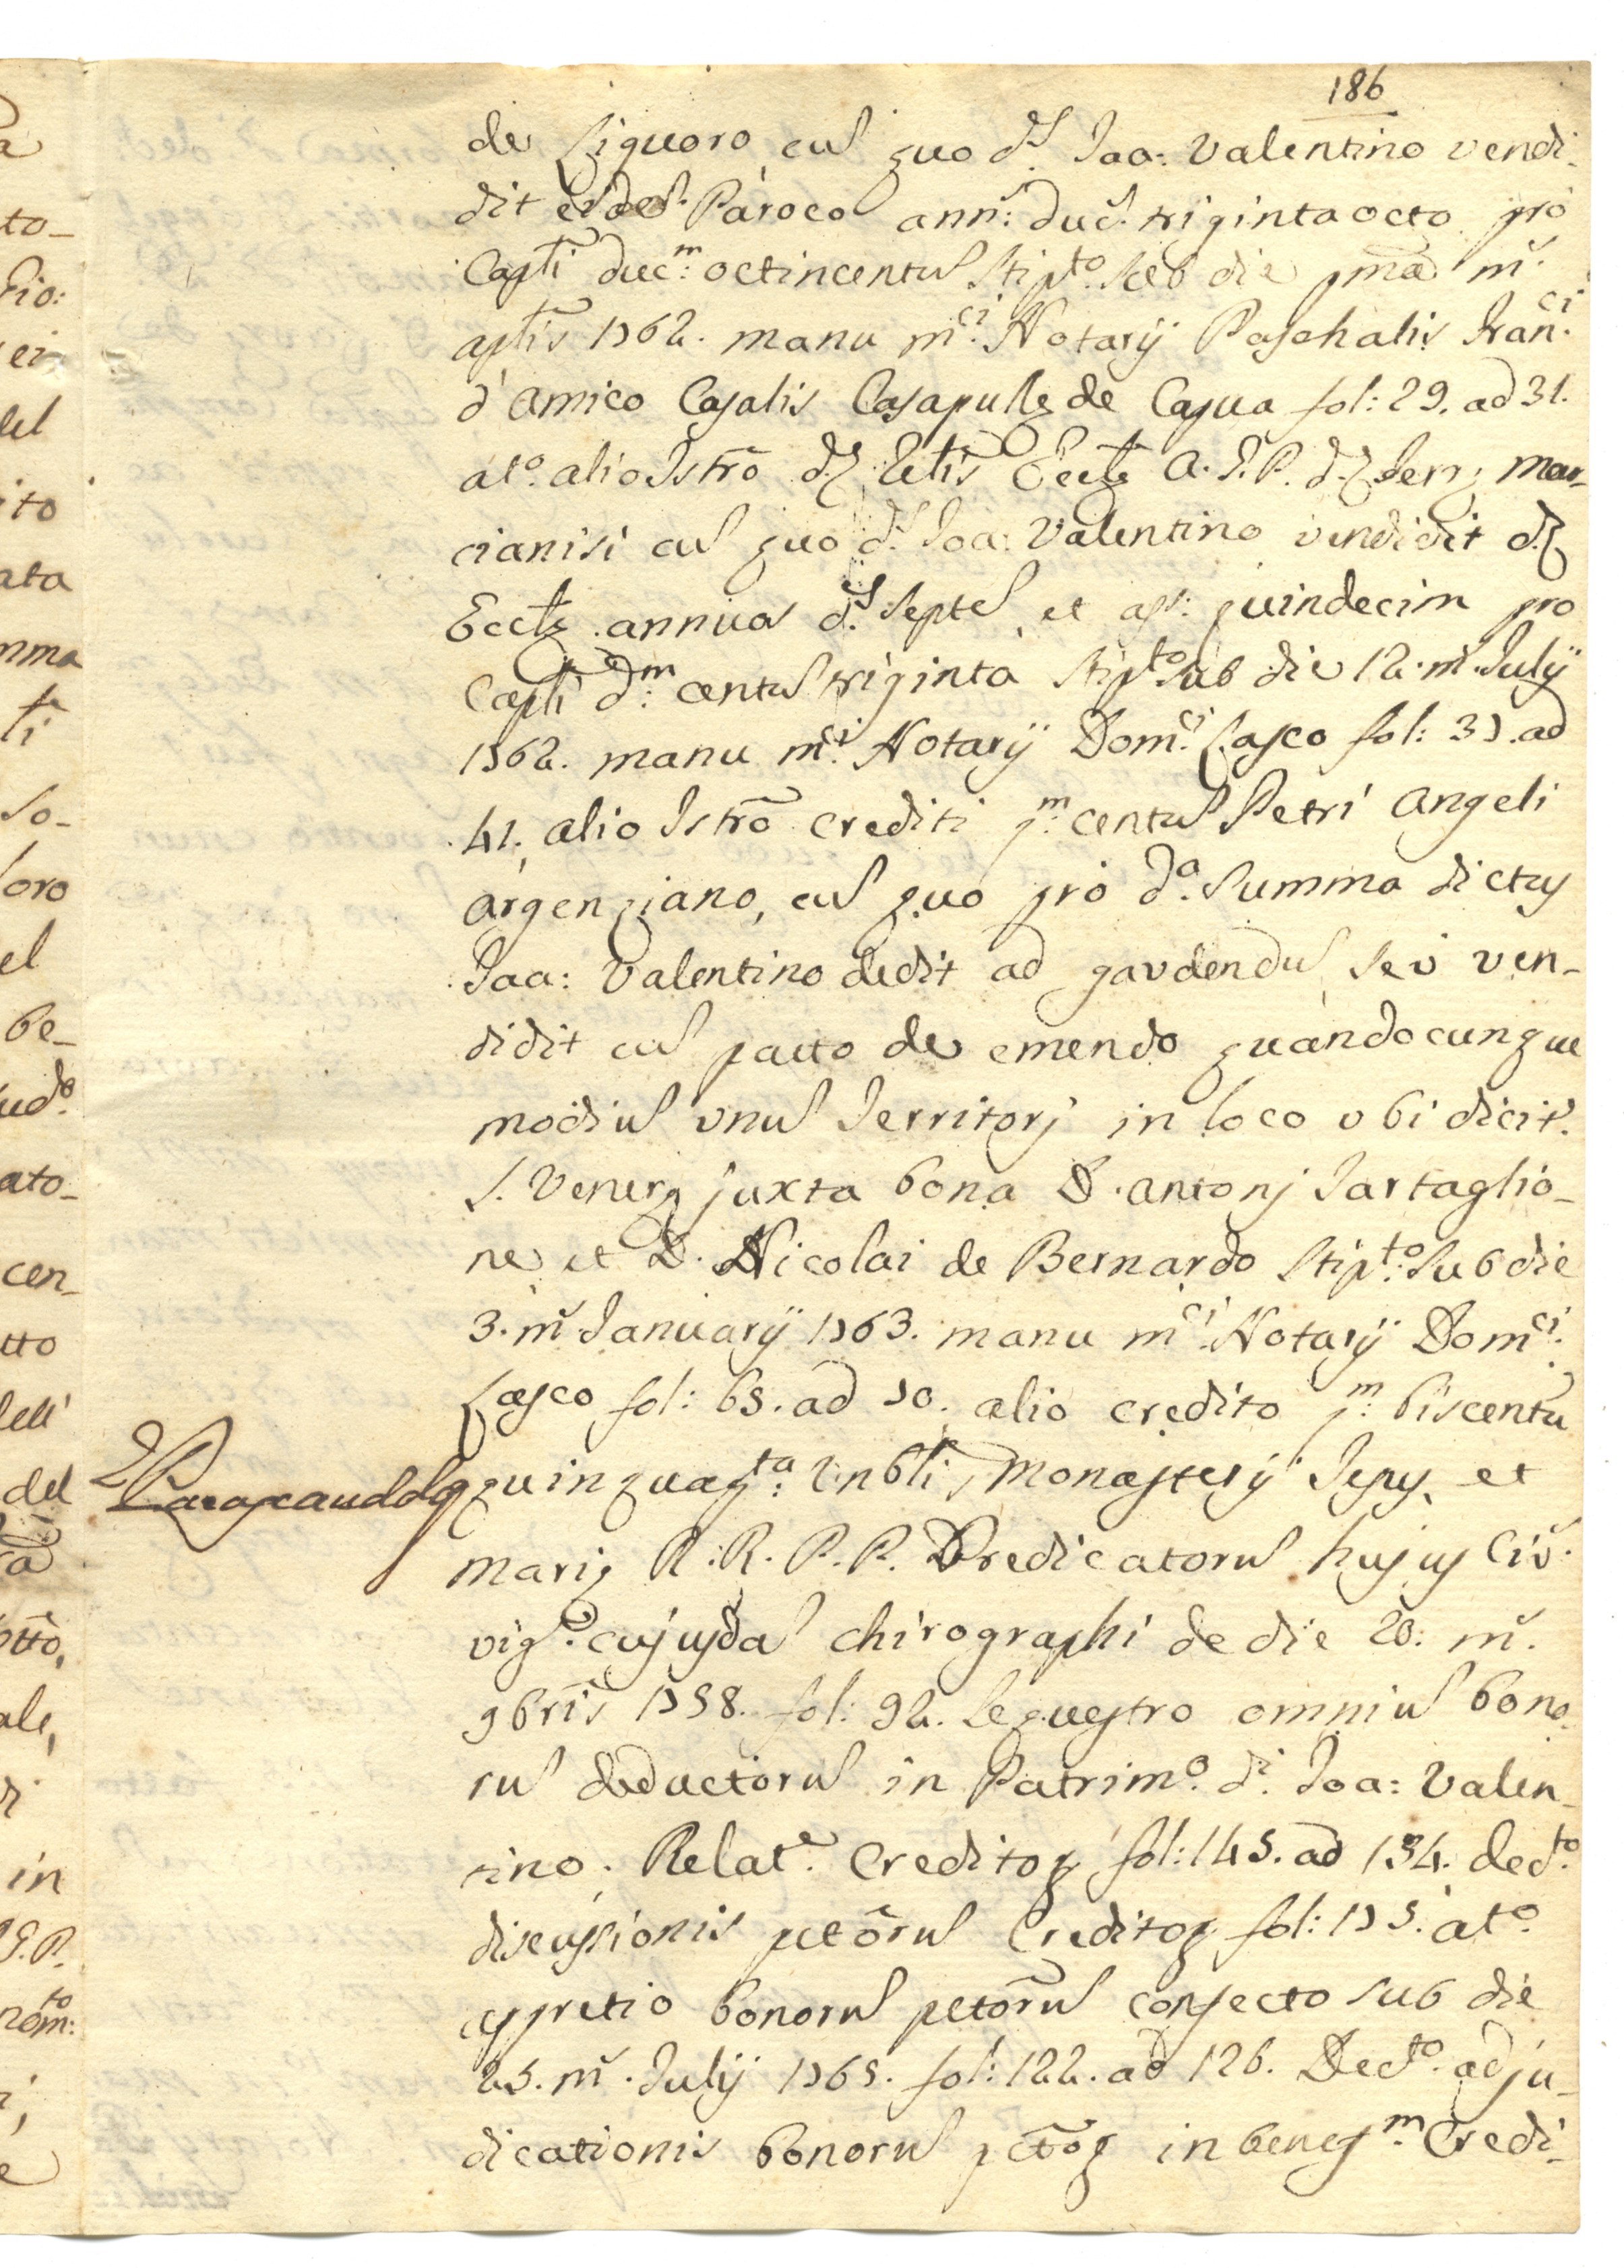 186
de Liguoro, cum quo d.s Joa: Valentino vendi-
dit eidem Paroco ann: duc. triginta octo pro
Capli duc:m octincentum stip.to sub die pma m.
aplis 1762. manu m.ci Notarij Paschalis Fran.ci
d'Amico Casalis Casapullæ de Capua fol: 29. ad 31.
at.o alio Istro d.æ Eccłæ A. G. P. d.æ Terræ Mar-
cianisi cum quo d.s Joa: Valentino vendidit d.æ
Eccłæ annuos d.s septem, et ass: quindecim pro
Capli d:m centum triginta stip.to sub die 12. m. Julij
1762. manu m.ci Notarij Dom.ci Lasco fol: 37. ad
41. alio Istro crediti centum Petri Angeli
Argenziano, cum quo pro d.a summa dictus
Joa: Valentino dedit ad gaudendum, seu ven-
didit cum pacto de emendo quandocunque
modium unum Territorj in loco ubi dicit.
S. Veneræ juxta bona D. Antonj Tartaglio-
ne et D. Nicolai de Bernardo stip.to sub die
3. m. Januarij 1763. manu m.ci Notarij Dom.ci
Lasco fol: 65. ad 70. alio credito biscentu
quinquag.ta Vnblis Monasterij Jesus, et
Mariæ R. R. P. P. Predicatorum hujus Civ.
vig.e cujusdam chirographi de die 20. m.
9bris 1758. fol: 92. sequestro omnium bono-
rum deductorum in Patrim.o d.i Joa: Valen-
tino. Relat.e Creditor fol: 145. ad 154. dec.to
discussionis pctorum Creditor fol: 175. at.o
appretio bonorum pctorum confecto sub die
25. m. Julij 1765. fol: 122. ad 126. Dec.to adju-
dicationis bonorum pctor in benef.m Credi-